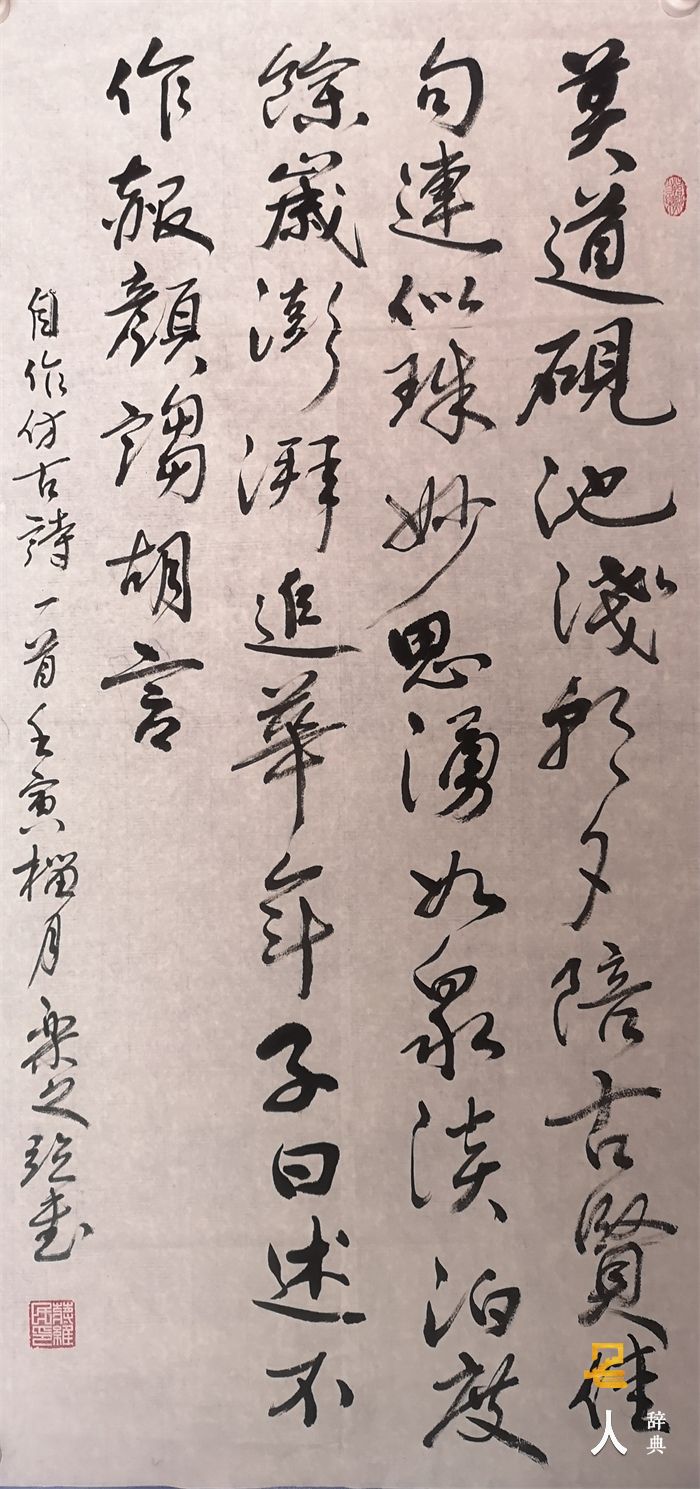 莫道硯池淺朝夕陪古賢佳
句連似珠妙思湧如泉淡泊度
餘歲澎湃追華年子曰述不
作赧顏謅胡言
自作仿古詩一首壬寅榴月樂之
名人
辞典